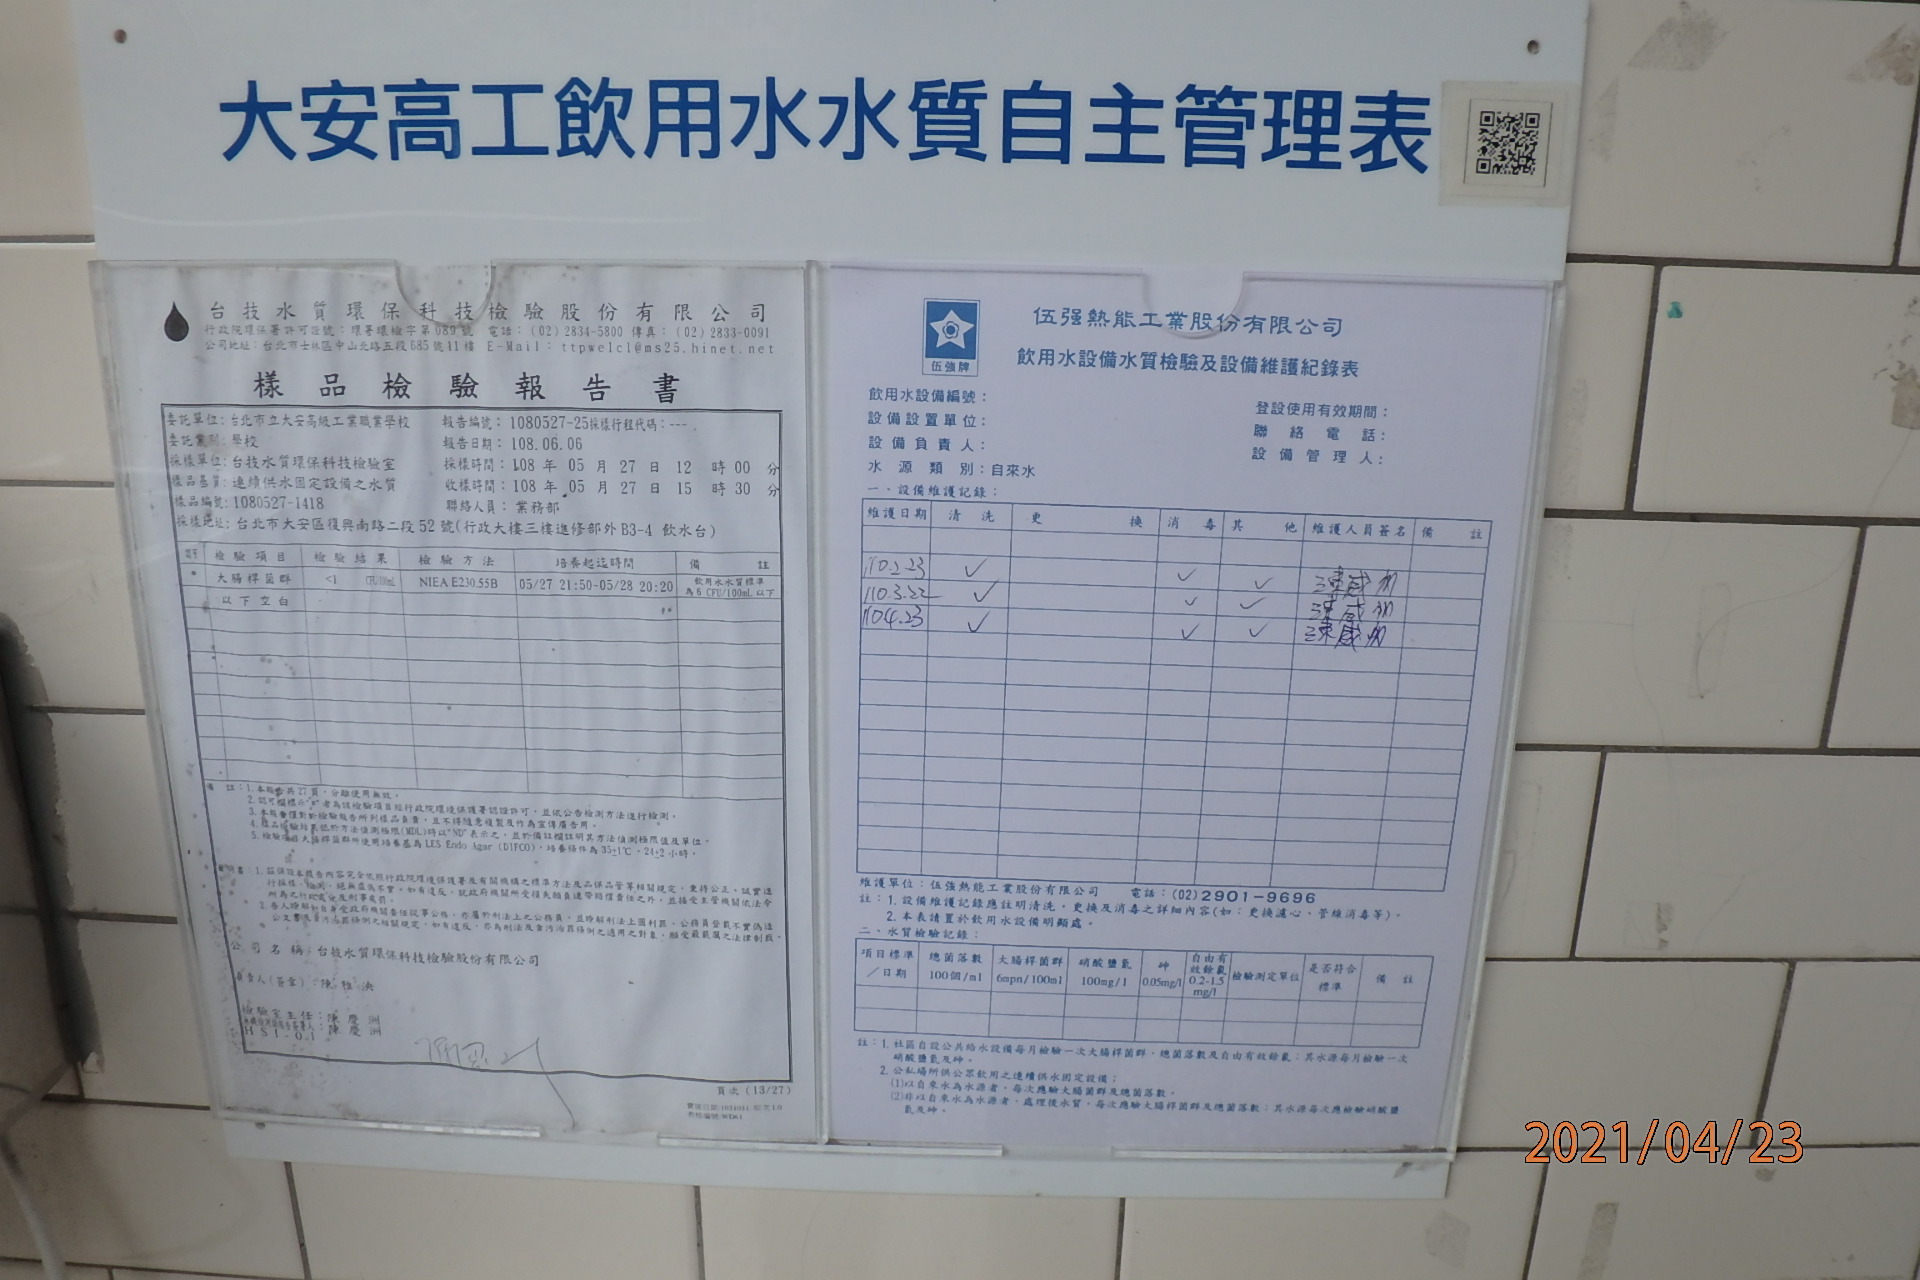 大安高工飲用水水質自主管理表
台技水質環保科技檢驗股份有限公司
行政院環保署許可證號：環署環檢字第089號 電話：(02)2834-5800 傳真：(02)2833-0091
公司地址：台北市士林區中山北路五段685號11樓 E-Mail：ttpwelcl@ms25.hinet.net
樣品檢驗報告書
委託單位：台北市立大安高級工業職業學校 報告編號：1080527-25採樣行程代碼：---
委託業別：學校 報告日期：108.06.06
採樣單位：台技水質環保科技檢驗室 採樣時間：108 年 05 月 27 日 12 時 00 分
樣品基質：連續供水固定設備之水質 收樣時間：108 年 05 月 27 日 15 時 30 分
樣品編號：1080527-1418 聯絡人員：業務部
採樣地址：台北市大安區復興南路二段52號(行政大樓三樓進修部外B3-4 飲水台)
檢驗項目 檢驗結果 檢驗方法 培養起迄時間 備註
* 大腸桿菌群 <1 CFU/100mL NIEA E230.55B 05/27 21:50-05/28 20:20 飲用水水質標準
為6 CFU/100mL以下
以下空白
備註：1.本報告共27頁，分離使用無效。
2.認可欄標示"*"者為該檢驗項目經行政院環境保護署認證許可，並依公告檢測方法進行檢測。
3.本報告僅對於檢驗報告所列樣品負責，且不得隨意複製及作為宣傳廣告用。
4.樣品檢驗結果低於方法偵測極限(MDL)時以"ND"表示之，並於備註欄註明其方法偵測極限值及單位。
5.檢驗項目大腸桿菌群所使用培養基為LES Endo Agar (DIFCO)，培養條件為35±1℃，24±2小時。
公司名稱：台技水質環保科技檢驗股份有限公司
負責人(簽章)：陳雅洪
檢驗室主任：陳慶洲
陳慶洲
HSI-01
頁次 (13/27)
伍強牌
伍强熱能工業股份有限公司
飲用水設備水質檢驗及設備維護紀錄表
飲用水設備編號： 登設使用有效期間：
設備設置單位： 聯絡電話：
設備負責人： 設備管理人：
水源類別：自來水
一、設備維護記錄：
維護日期 清洗 更換 消毒 其他 維護人員簽名 備註
110.2.23 ✓ ✓ ✓
110.3.22 ✓ ✓ ✓
110.4.23 ✓ ✓ ✓
維護單位：伍強熱能工業股份有限公司 電話：(02)2901-9696
註：1. 設備維護記錄應註明清洗，更換及消毒之詳細內容(如：更換濾心、管維消毒等)。
2. 本表請置於飲用水設備明顯處。
二、水質檢驗記錄：
項目標準／日期 總菌落數 100個/ml 大腸桿菌群 6mpn/100ml 硝酸鹽氮 100mg/l 砷 0.05mg/l 自由有效餘氯 0.2-1.5 mg/l 檢驗測定單位 是否符合標準 備註
註：1. 社區自設公共給水設備每月檢驗一次大腸桿菌群、總菌落數及自由有效餘氯；其水源每月檢驗一次
硝酸鹽氮及砷。
2. 公私場所供公眾飲用之連續供水固定設備：
(1)以自來水為水源者，每次應驗大腸菌群及總菌落數。
(2)非以自來水為水源者，處理後水質，每次應驗大腸桿菌群及總菌落數；其水源每次應檢驗硝酸鹽
氮及砷。
2021/04/23